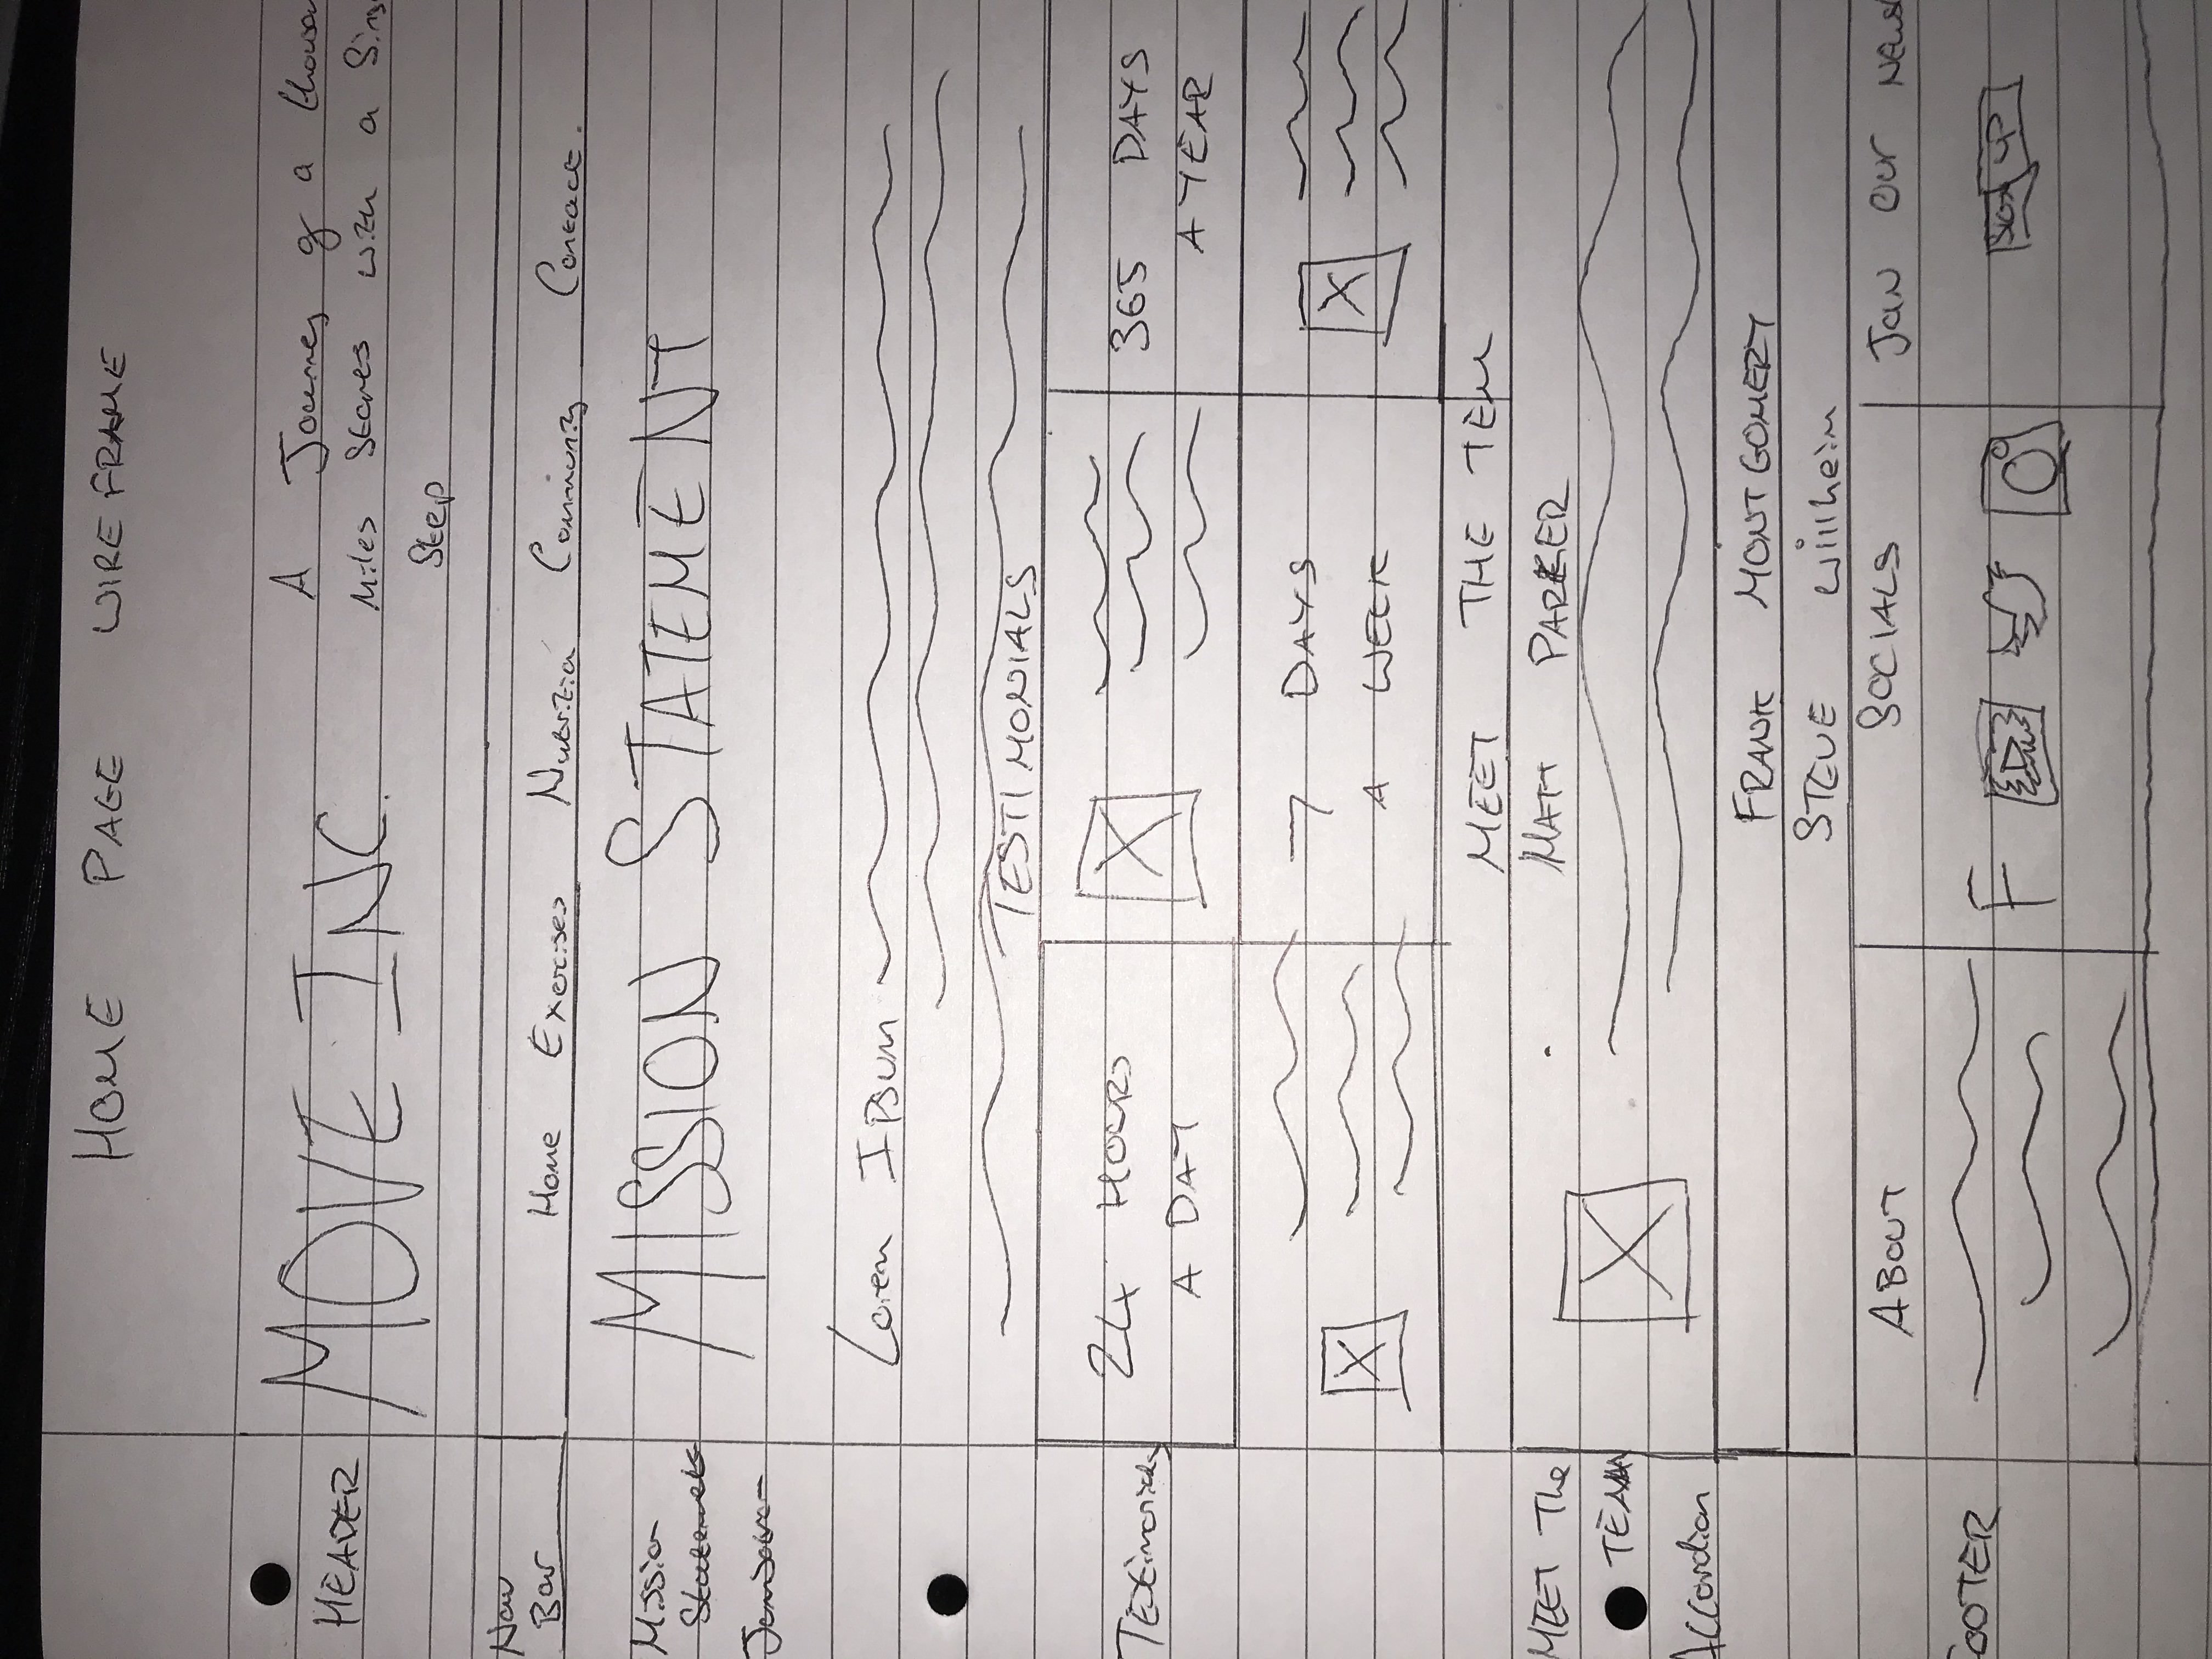 HOME PAGE WIREFRAME
HEADER
MOVE INC.
A Journey of a
Miles Starts with a
Step
Nav
Bar
Home Exercises Nutrition Community Contact.
Mission
Statement
MISSION STATEMENT
Lorem IPSum
TESTIMONIALS
Testimonials
24 HOURS
A DAY
365 DAYS
A YEAR
7 DAYS
A WEEK
MEET THE TEM
MEET The
TEAM
Accordian
MATT PARKER
FRANK MONTGOMERY
STEVE Willheim
FOOTER
ABOUT
SOCIALS
F
Join Our
SIGN UP